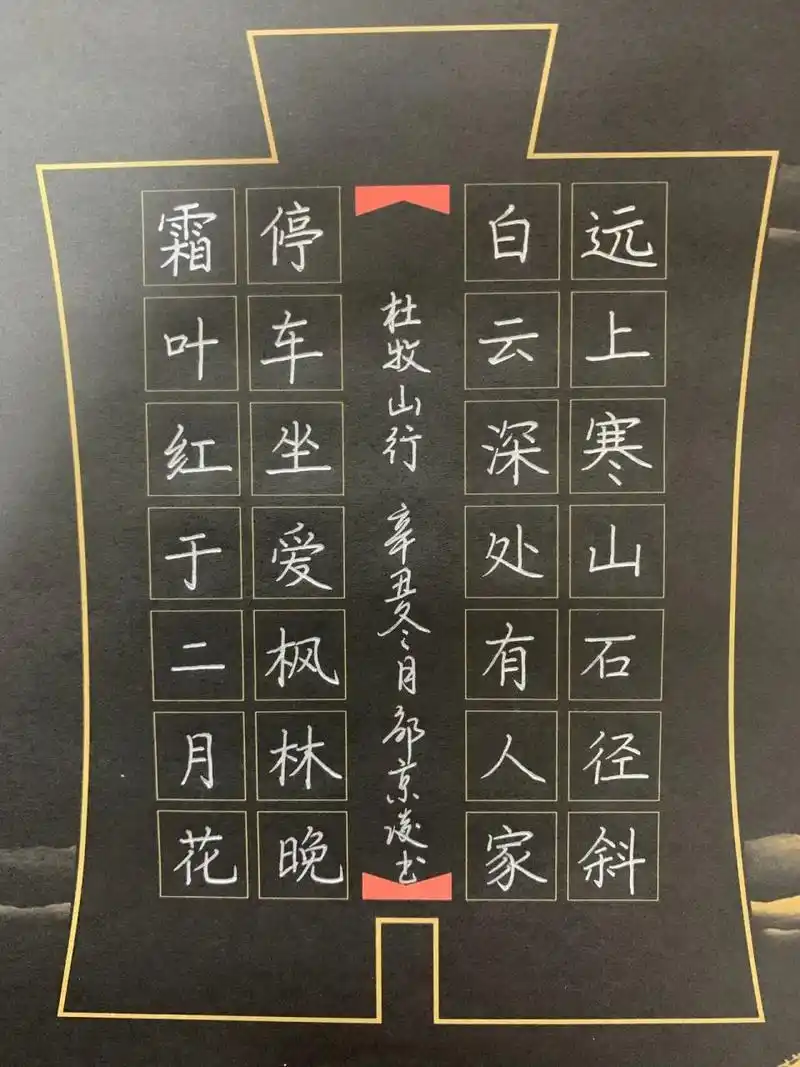 远上寒山石径斜
白云深处有人家
杜牧山行 辛丑冬月 郇京凌书
停车坐爱枫林晚
霜叶红于二月花